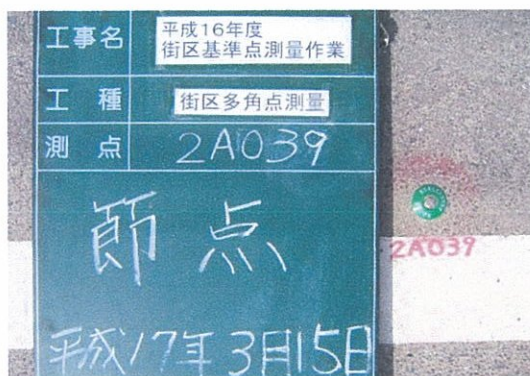 工事名
平成16年度
街区基準点測量作業
工種
街区多角点測量
測点
2A039
節点
平成17年3月15日
2A039